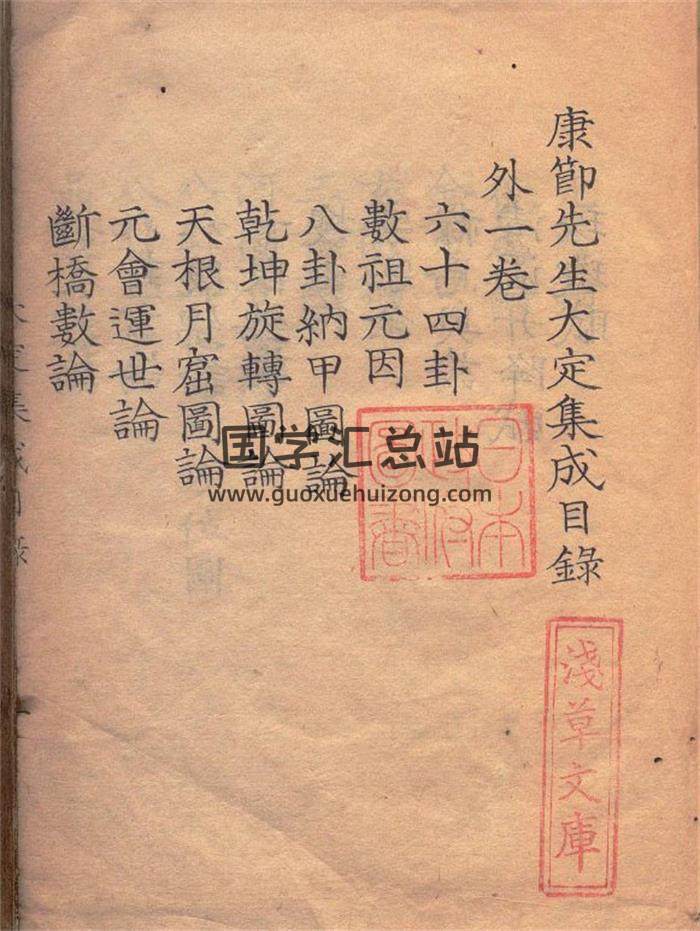 康節先生大定集成目錄
外一卷
六十四卦
數祖元因
八卦納甲圖論
乾坤旋轉圖論
天根月窟圖論
元會運世論
斷橋數論
日本
政府
圖書
淺草文庫
国学汇总站
www.guoxuehuizong.com